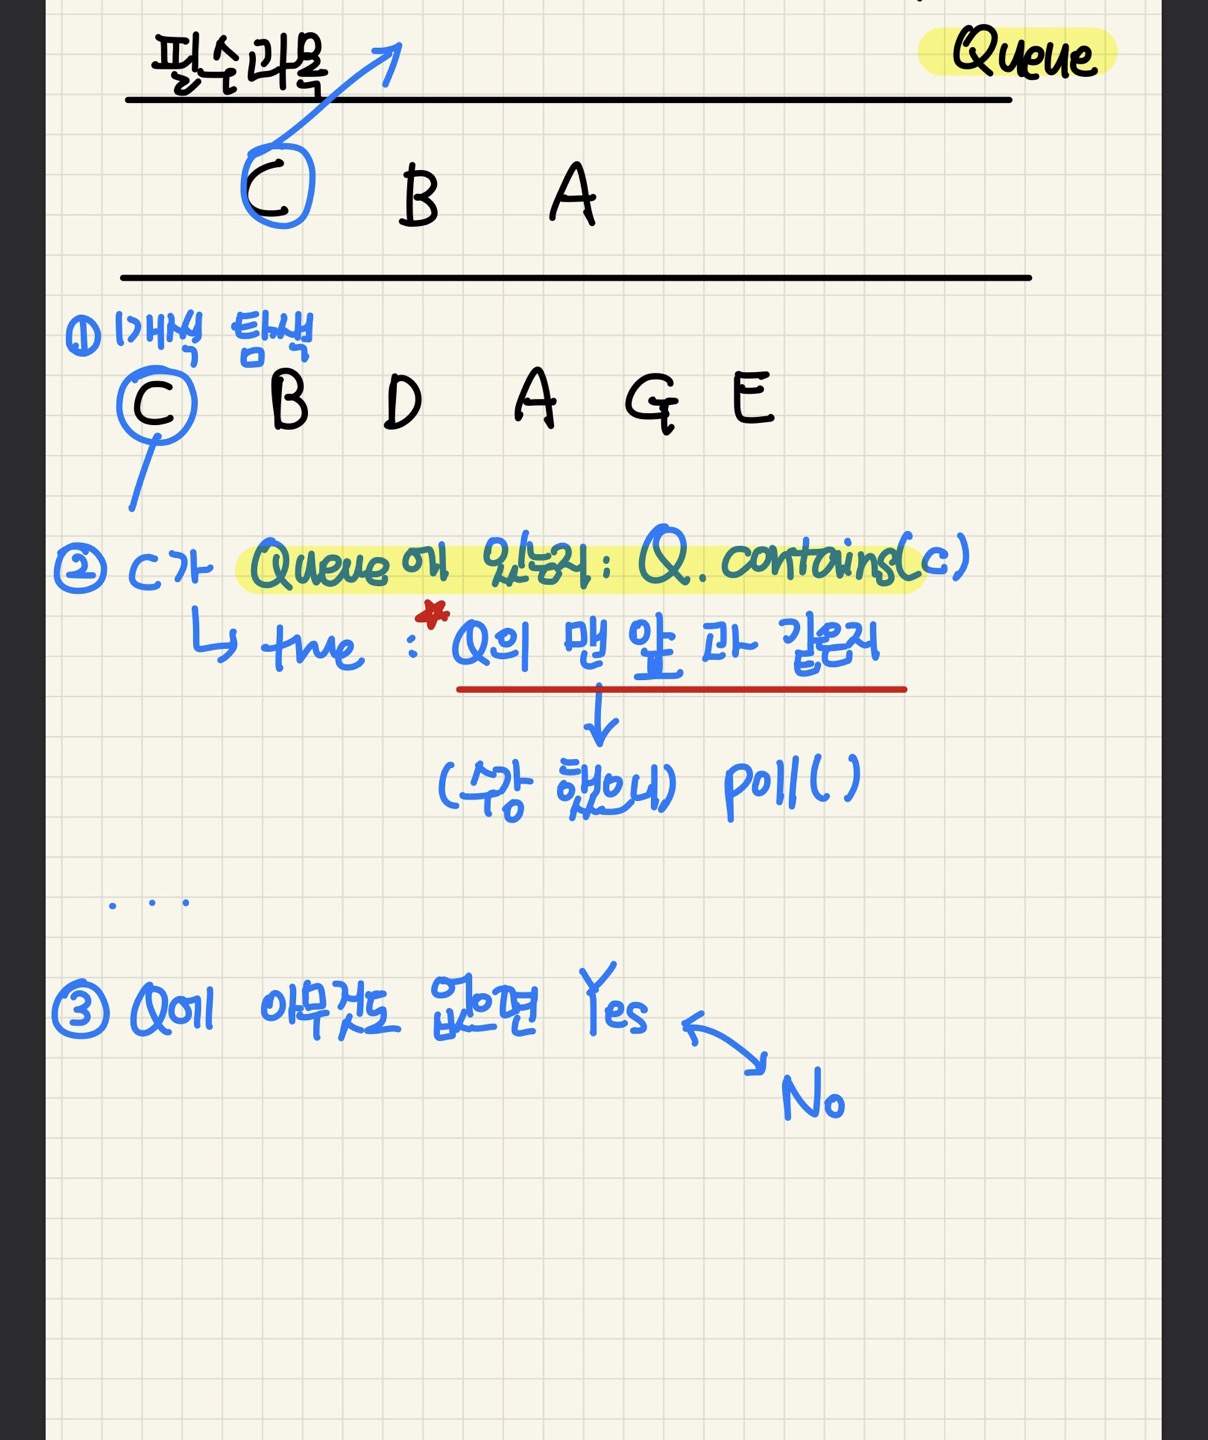 필수과목
Queue
C B A
① 1개씩 탐색
C B D A G E
② C가 Queue에 있는지 : Q. contains(c)
↳ true : *Q의 맨 앞 과 같은지
↓
(수강 했으니) poll( )
...
③ Q에 아무것도 없으면 Yes
No